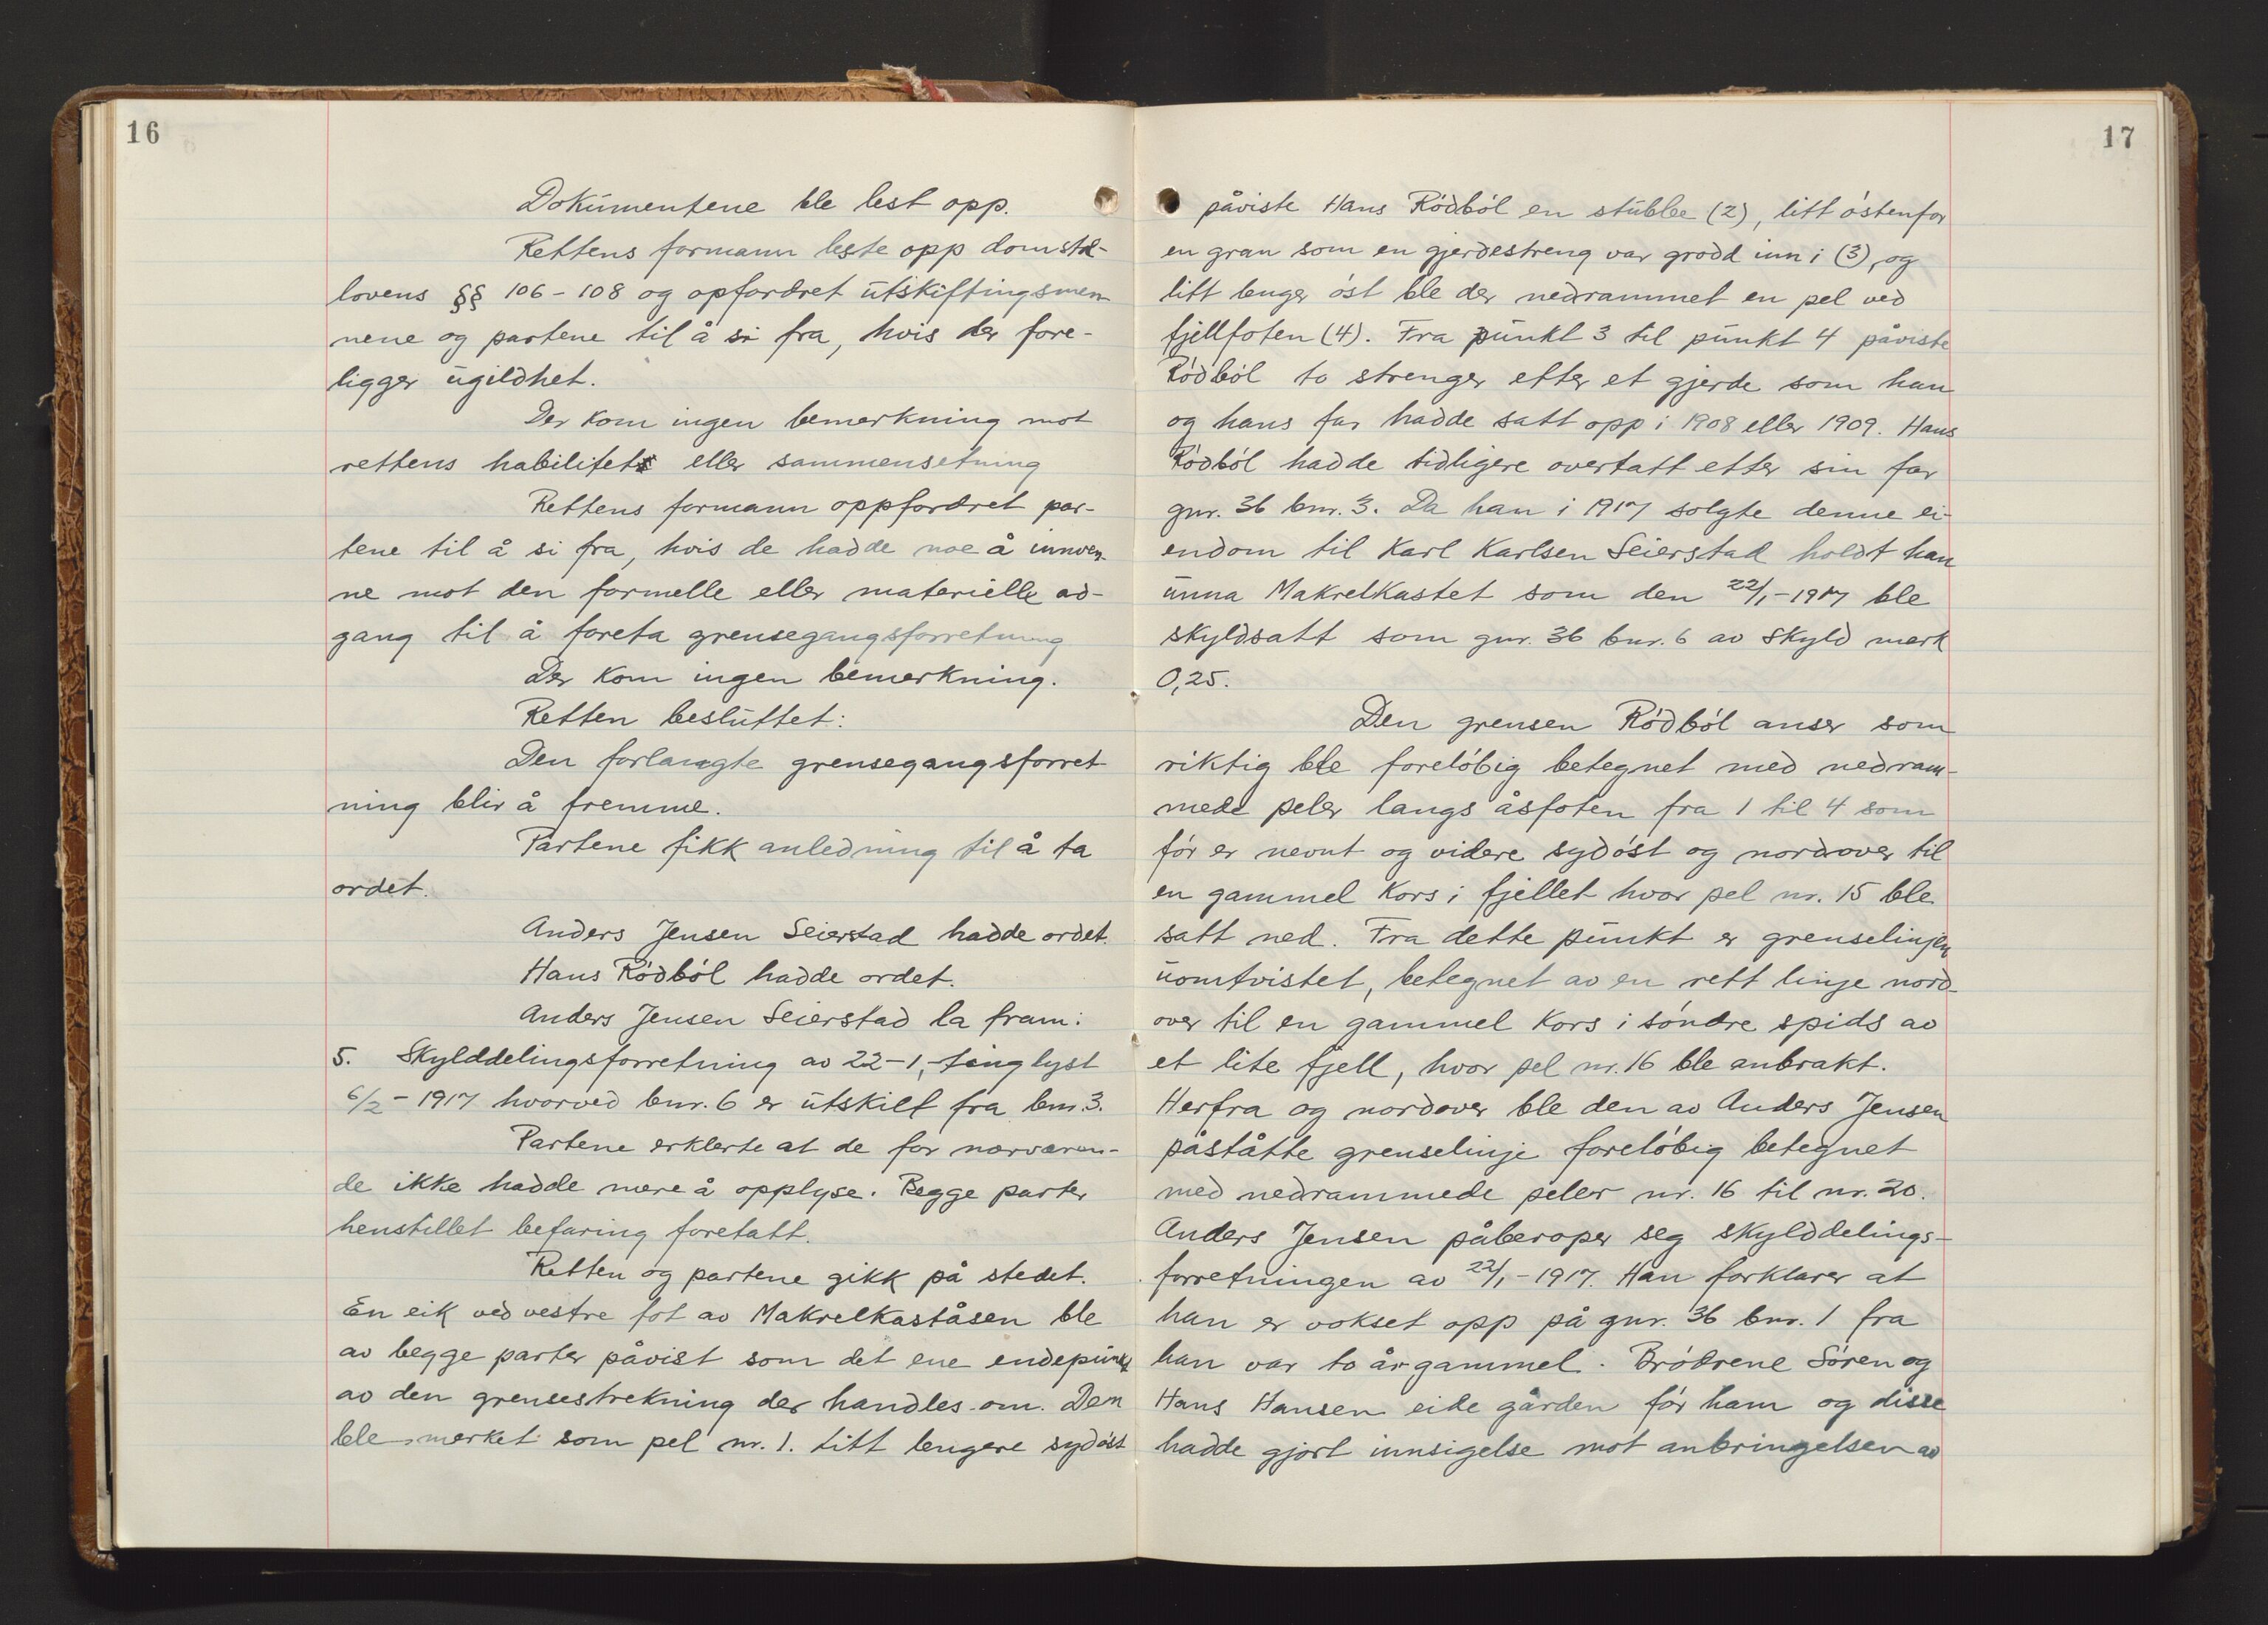 16
Dokumentene ble lest opp.
Rettens formann leste opp domstol-
lovens §§ 106-108 og opfordret utskiftingsmen-
nene og partene til å si fra, hvis der fore-
ligger ugildhet.
Der kom ingen bemerkning mot
rettens habilitet eller sammensetning
Rettens formann oppfordret par-
tene til å si fra, hvis de hadde noe å innven-
ne mot den formelle eller materielle ad-
gang til å foreta grensegangsforretning
Der kom ingen bemerkning.
Retten besluttet:
Den forlangte grensegangsforret
ning blir å fremme.
Partene fikk anledning til å ta
ordet.
Anders Jensen Seierstad hadde ordet.
Hans Rødbøl hadde ordet.
Anders Jensen Seierstad la fram:
5. Skylddelingsforretning av 22-1, tinglyst
6/2-1917 hvorved bnr. 6 er utskilt fra bnr. 3.
Partene erklerte at de for nærværen-
de ikke hadde mere å opplyse. Begge parter
henstillet befaring foretatt.
Retten og partene gikk på stedet.
En eik ved vestre fot av Makrelkaståsen ble
av begge parter påvist som det ene endepunkt
av den grensestrekning der handles om. Den
ble merket som pel nr. 1. Litt lengere sydøst
17
påviste Hans Rødbøl en stubbe (2), litt østenfor
en gran som en gjerdestreng var grodd inn i (3), og
litt lenger øst ble der nedrammet en pel ved
fjellfoten (4). Fra punkt 3 til punkt 4 påviste
Rødbøl to strenger efter et gjerde som han
og hans far hadde satt opp i 1908 eller 1909. Hans
Rødbøl hadde tidligere overtatt etter sin far
gnr. 36 bnr. 3. Da han i 1917 solgte denne ei-
endom til Karl Karlsen Seierstad holdt han
unna Makrelkastet som den 22/1-1917 ble
skyldsatt som gnr. 36 bnr. 6 av skyld mark
0,25.
Den grensen Rødbøl anser som
riktig ble foreløbig betegnet med nedram-
mede peler langs åsfoten fra 1 til 4 som
før er nevnt og videre sydøst og nordover til
en gammel kors i fjellet hvor pel nr. 15 ble
satt ned. Fra dette punkt er grenselinjen
uomtvistet, betegnet av en rett linje nord-
over til en gammel kors i søndre spids av
et lite fjell, hvor pel nr. 16 ble anbrakt.
Herfra og nordover ble den av Anders Jensen
påståtte grenselinje foreløbig betegnet
med nedrammede peler nr. 16 til nr. 20.
Anders Jensen påberoper seg skylddelings-
forretningen av 22/1-1917. Han forklarer at
han er vokset opp på gnr. 36 bnr. 1 fra
han var to år gammel. Brødrene Søren og
Hans Hansen eide gården før ham og disse
hadde gjort innsigelse mot anbringelsen av